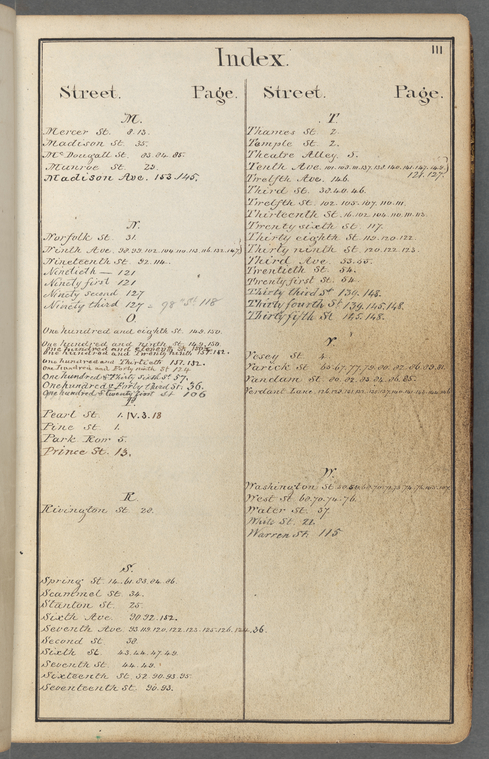 III
Index.
Street. Page.
M.
Mercer St. 8.13.
Madison St. 35.
McDougall St. 83.84.85.
Munroe St. 28.
Madison Ave. 153.145.
N.
Norfolk St. 31.
Ninth Ave.
Nineteenth St. 92.114.
Ninetieth — 121
Ninety first 121
Ninety second 127
Ninety third 127 98th St. 118
O.
One hundred and eighth St.
One hundred and ninth St.
One hundred and eleventh St.
One hundred and Twenty Ninth 157.182.
One hundred and Thirtieth 157.182.
One hundred and Forty ninth St. 174
One hundred & Thirty Sixth St. 57.
One hundred & Forty third St. 36.
One hundred & twenty first St 106
P.
Pearl St. 1.IV.3.18
Pine St. 1.
Park Row 5.
Prince St. 13.
R.
Rivington St. 20.
S.
Spring St. 14.61.83.84.86.
Scammel St. 34.
Stanton St. 25.
Sixth Ave. 90.92.152.
Seventh Ave. 93.119.120.122.123.125.126. 36.
Second St. 38.
Sixth St. 43.44.47.49.
Seventh St. 44.49.
Sixteenth St. 32.90.93.95.
Seventeenth St. 90.93.
Street. Page.
T.
Thames St. 2.
Temple St. 2.
Theatre Alley 5.
Tenth Ave. 121.127.
Twelfth Ave. 146.
Third St. 38.40.46.
Twelfth St. 102.103.107.110.111.
Thirteenth St. 16.102.104.110.111.112.
Twenty sixth St. 117.
Thirty eighth St. 119.120.122.
Thirty ninth St. 120.122.123.
Third Ave. 53.55.
Twentieth St. 54.
Twenty first St. 54.
Thirty third St. 139.148.
Thirty fourth St. 139.145.148.
Thirty fifth St. 145.148.
V.
Vesey St. 4.
Varick St.
Vandam St. 80.82.83.84.86.85.
Verdant Lane.
W.
Washington St.
West St. 60.70.74.76.
Water St. 37.
White St. 21.
Warren St. 115